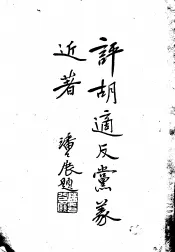 評胡適反黨義
近著
潘公展題